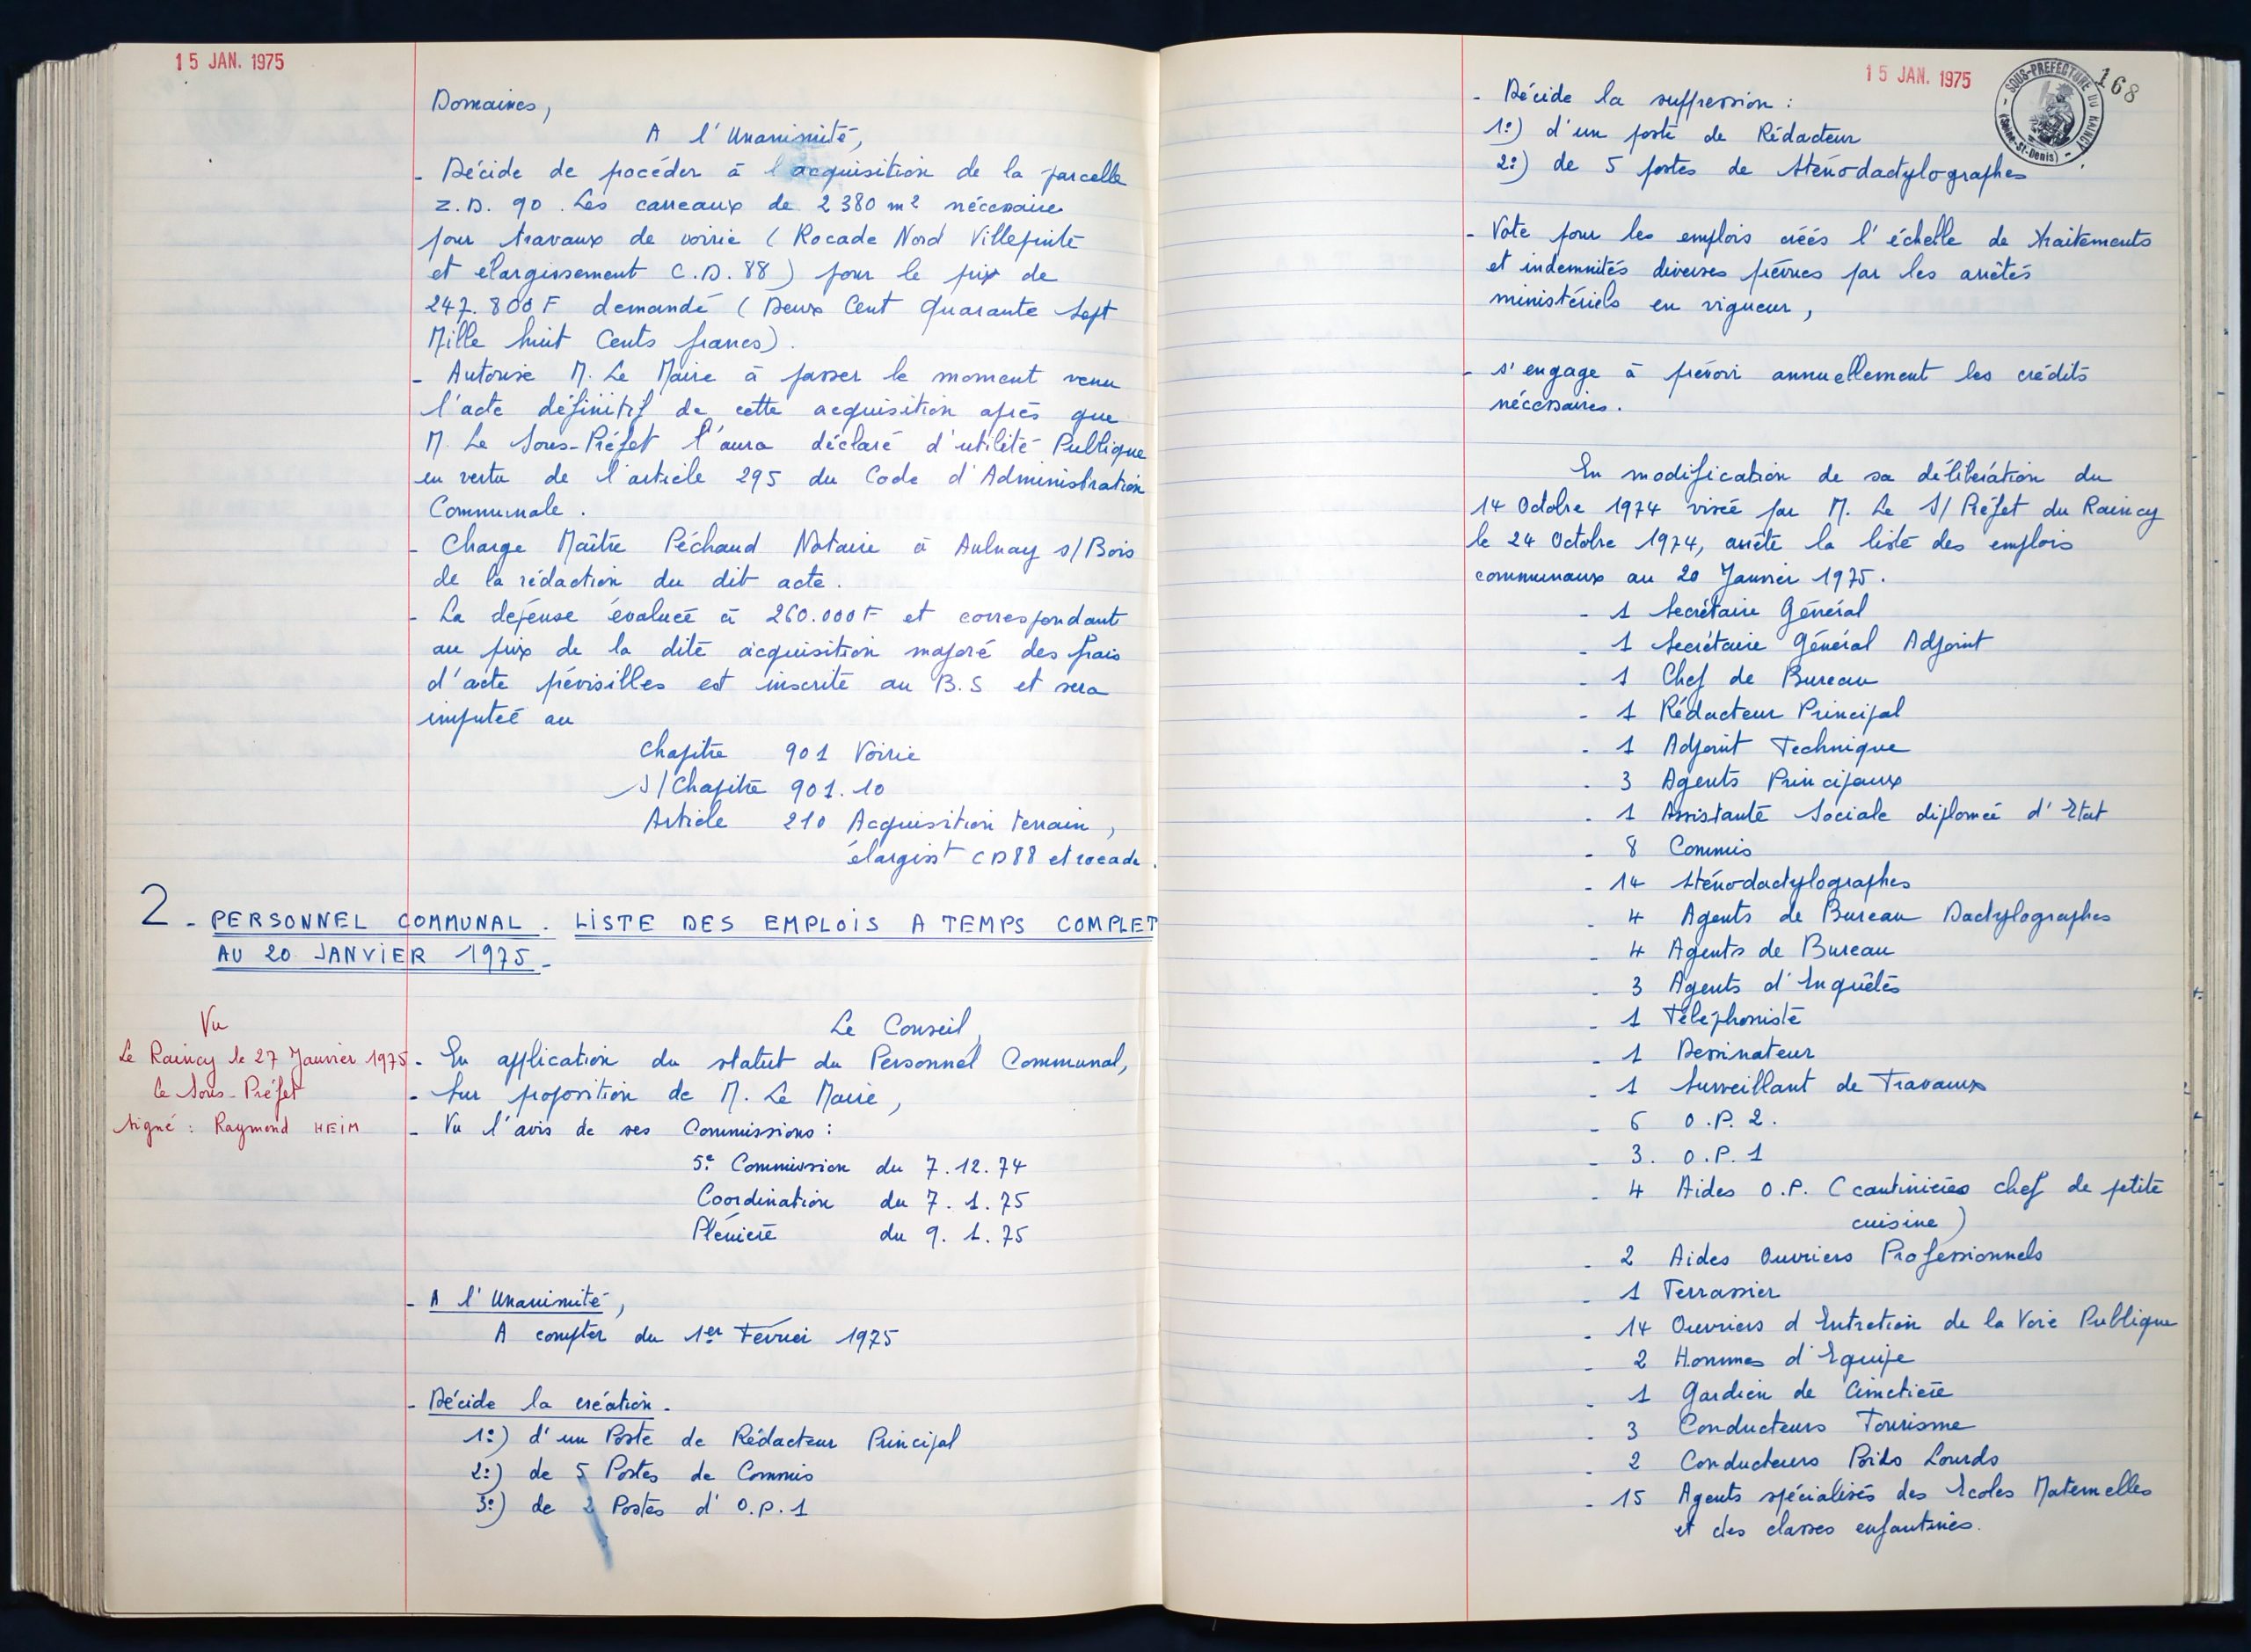 15 JAN. 1975
Domaines,
A l'Unanimité,
- Décide de procéder à l'acquisition de la parcelle
Z.D. 90. Les carreaux de 2380 m2 nécessaire
pour travaux de voirie (Rocade Nord Villepinte
et élargissement C.D. 88) pour le prix de
247.800 F demandé (Deux Cent Quarante Sept
Mille huit Cents francs).
- Autorise M. Le Maire à passer le moment venu
l'acte définitif de cette acquisition après que
M. Le Sous-Préfet l'aura déclaré d'utilité Publique
en vertu de l'article 295 du Code d'Administration
Communale.
- Charge Maître Péchaud Notaire à Aulnay s/Bois
de la rédaction du dit acte.
- La dépense évaluée à 260.000 F et correspondant
au prix de la dite acquisition majoré des frais
d'acte prévisibles est inscrite au B.S et sera
imputée au
Chapitre 901 Voirie
S/Chapitre 901.10
Article 210 Acquisition terrain,
élargisst CD88 et rocade.
2 - PERSONNEL COMMUNAL. LISTE DES EMPLOIS A TEMPS COMPLET
AU 20 JANVIER 1975.
Vu
Le Raincy le 27 Janvier 1975
le Sous-Préfet
signé : Raymond HEIM
Le Conseil,
- En application du statut du Personnel Communal,
- Sur proposition de M. Le Maire,
- Vu l'avis de ses Commissions :
5e Commission du 7.12.74
Coordination du 7.1.75
Plénière du 9.1.75
- A l'Unanimité,
A compter du 1er Février 1975
- Décide la création.
1°) d'un Poste de Rédacteur Principal
2°) de 5 Postes de Commis
3°) de 2 Postes d'O.P.1
15 JAN. 1975
SOUS-PREFECTURE DU RAINCY
(Seine-St-Denis)
168
- Décide la suppression :
1°) d'un poste de Rédacteur
2°) de 5 postes de Sténodactylographes
- Vote pour les emplois créés l'échelle de traitements
et indemnités diverses prévues par les arrêtés
ministériels en vigueur,
- s'engage à prévoir annuellement les crédits
nécessaires.
En modification de sa délibération du
14 Octobre 1974 visée par M. Le S/Préfet du Raincy
le 24 Octobre 1974, arrête la liste des emplois
communaux au 20 Janvier 1975.
- 1 Secrétaire Général
- 1 Secrétaire Général Adjoint
- 1 Chef de Bureau
- 1 Rédacteur Principal
- 1 Adjoint Technique
- 3 Agents Principaux
- 1 Assistante Sociale diplomée d'Etat
- 8 Commis
- 14 Sténodactylographes
- 4 Agents de Bureau Dactylographes
- 4 Agents de Bureau
- 3 Agents d'Enquêtes
- 1 Téléphoniste
- 1 Dessinateur
- 1 Surveillant de Travaux
- 6 O.P.2.
- 3. O.P.1
- 4 Aides O.P. (cantinières chef de petite
cuisine)
- 2 Aides Ouvriers Professionnels
- 1 Terrassier
- 14 Ouvriers d'Entretien de la Voie Publique
- 2 Hommes d'Equipe
- 1 Gardien de Cimetière
- 3 Conducteurs Tourisme
- 2 Conducteurs Poids Lourds
- 15 Agents spécialisés des Ecoles Maternelles
et des classes enfantines.